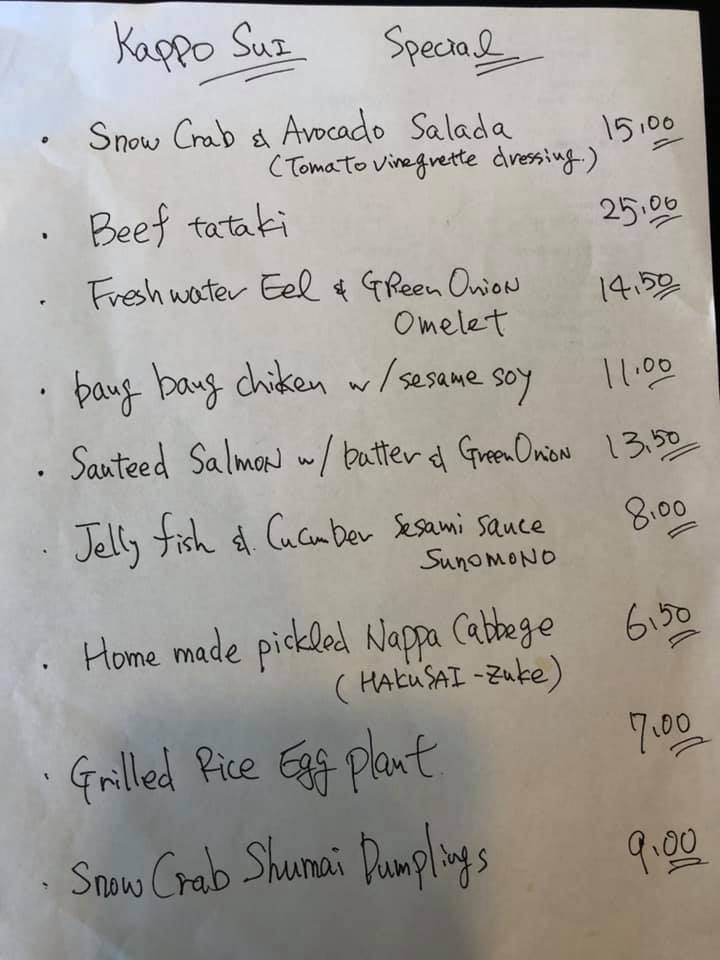 Kappo Sui Special
• Snow Crab & Avocado Salada 15.00
(Tomato vinegrette dressing.)
• Beef tataki 25.00
• Freshwater Eel & GReen Onion 14.50
Omelet
• bang bang chiken w/sesame soy 11.00
• Santeed Salmon w/ batter & Green Onion 13.50
• Jelly fish & Cucumber Sesami sauce 8.00
SUNOMONO
• Home made pickled Nappa Cabbege 6.50
(HAKUSAI-Zuke)
• Grilled Rice Egg plant. 7.00
• Snow Crab Shumai Dumplings 9.00